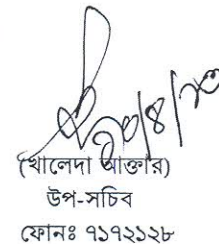 ২০/৪/২৩
(খালেদা আক্তার)
উপ-সচিব
ফোনঃ ৭১৭২১২৮